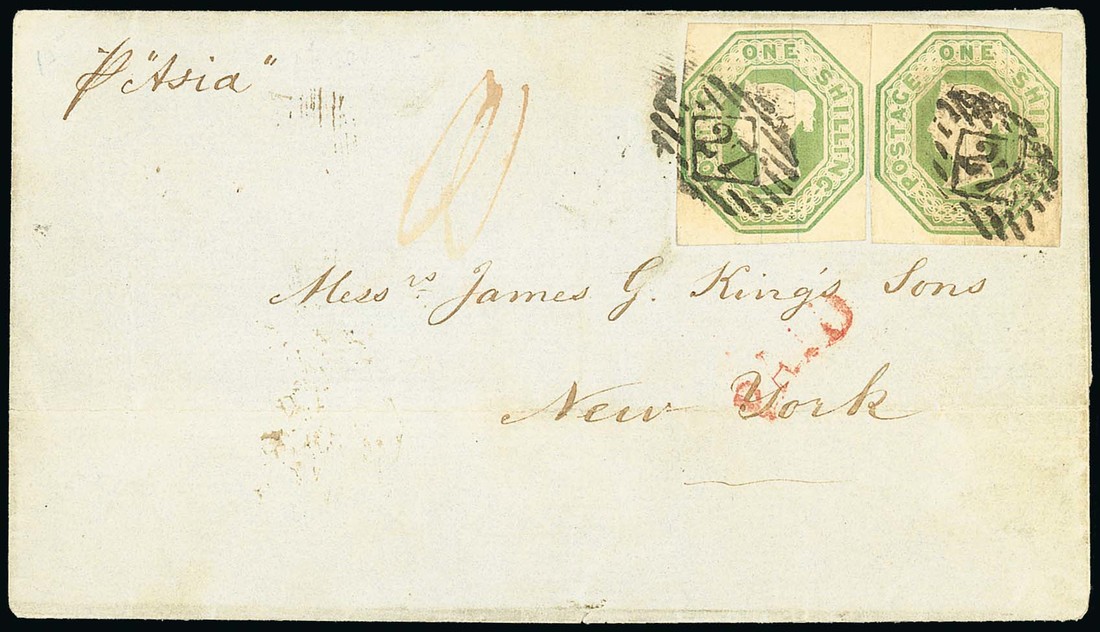 p "Asia"
ONE SHILLING
POSTAGE ONE SHILLING
Messrs. James G. King's Sons
PAID
New York